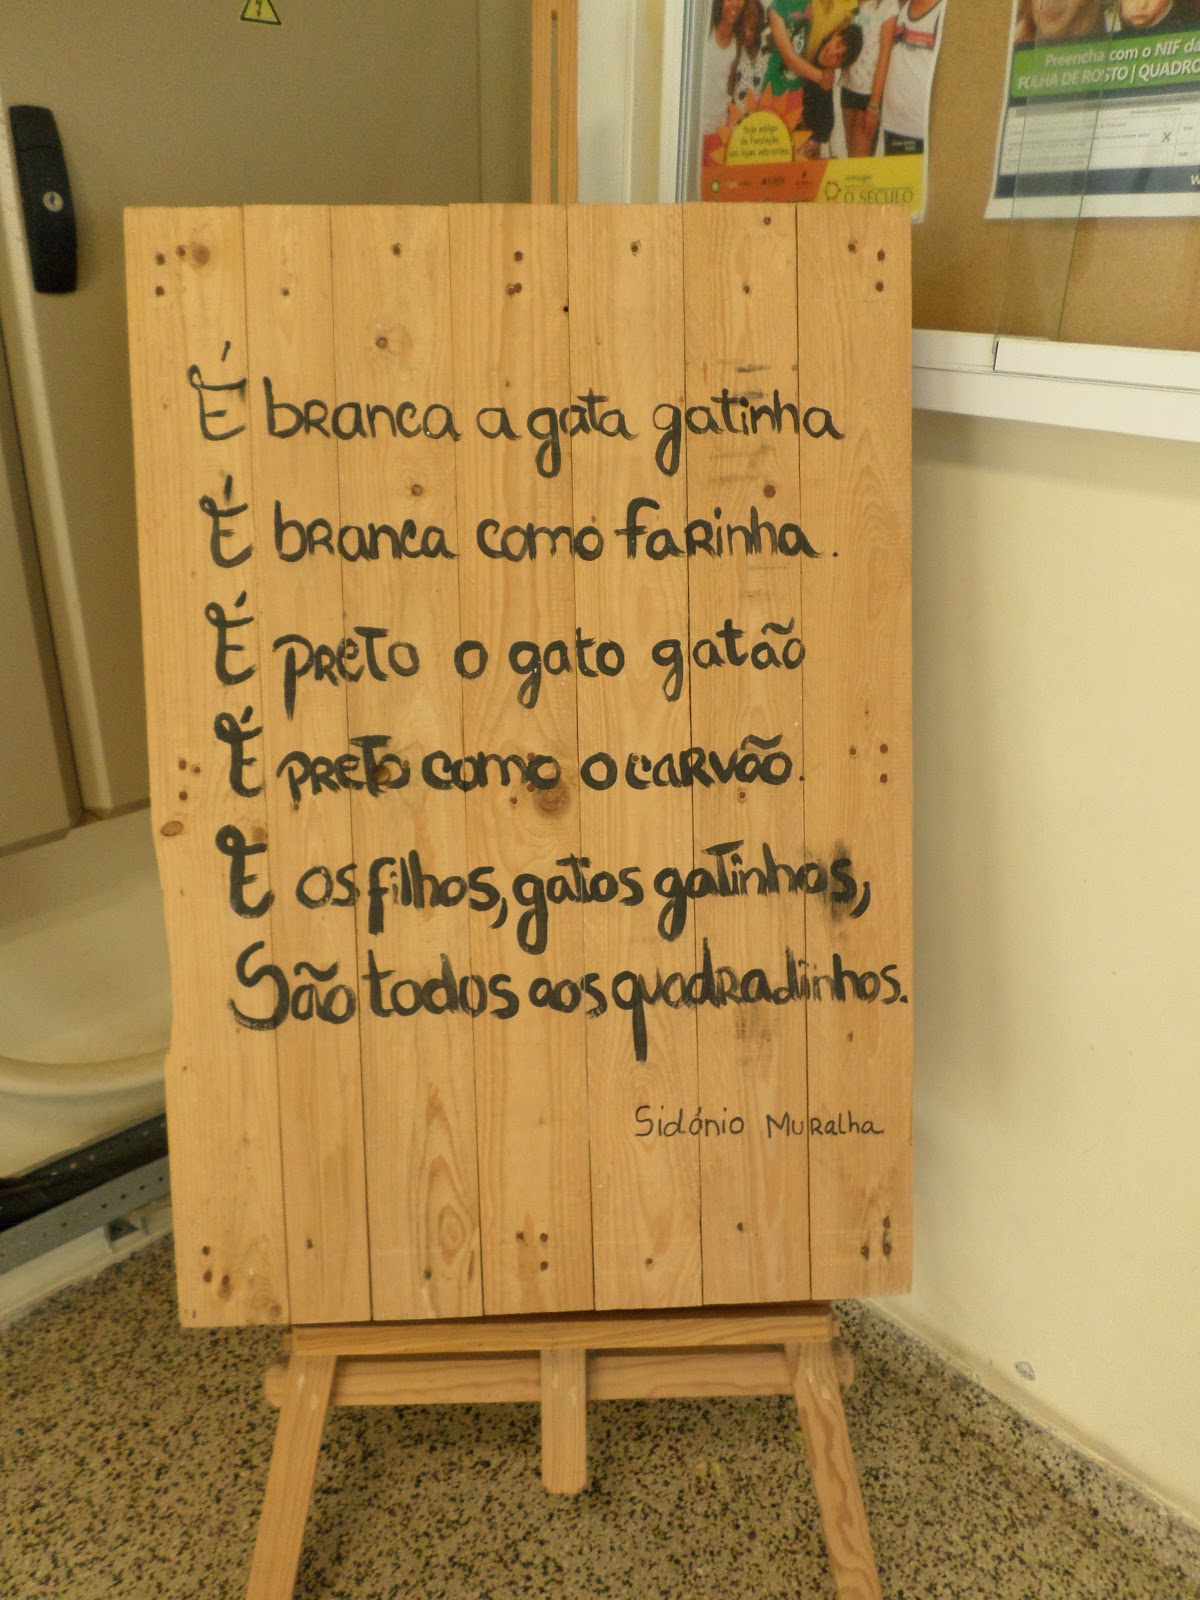 Seja amigo
da Fundação
nas lojas aderentes.
O SÉCULO
Preencha com o NIF da
FOLHA DE ROSTO | QUADRO
X
É branca a gata gatinha
É branca como farinha.
É preto o gato gatão
É preto como o carvão.
E os filhos, gatos gatinhos,
São todos aos quadradinhos.
Sidónio Muralha